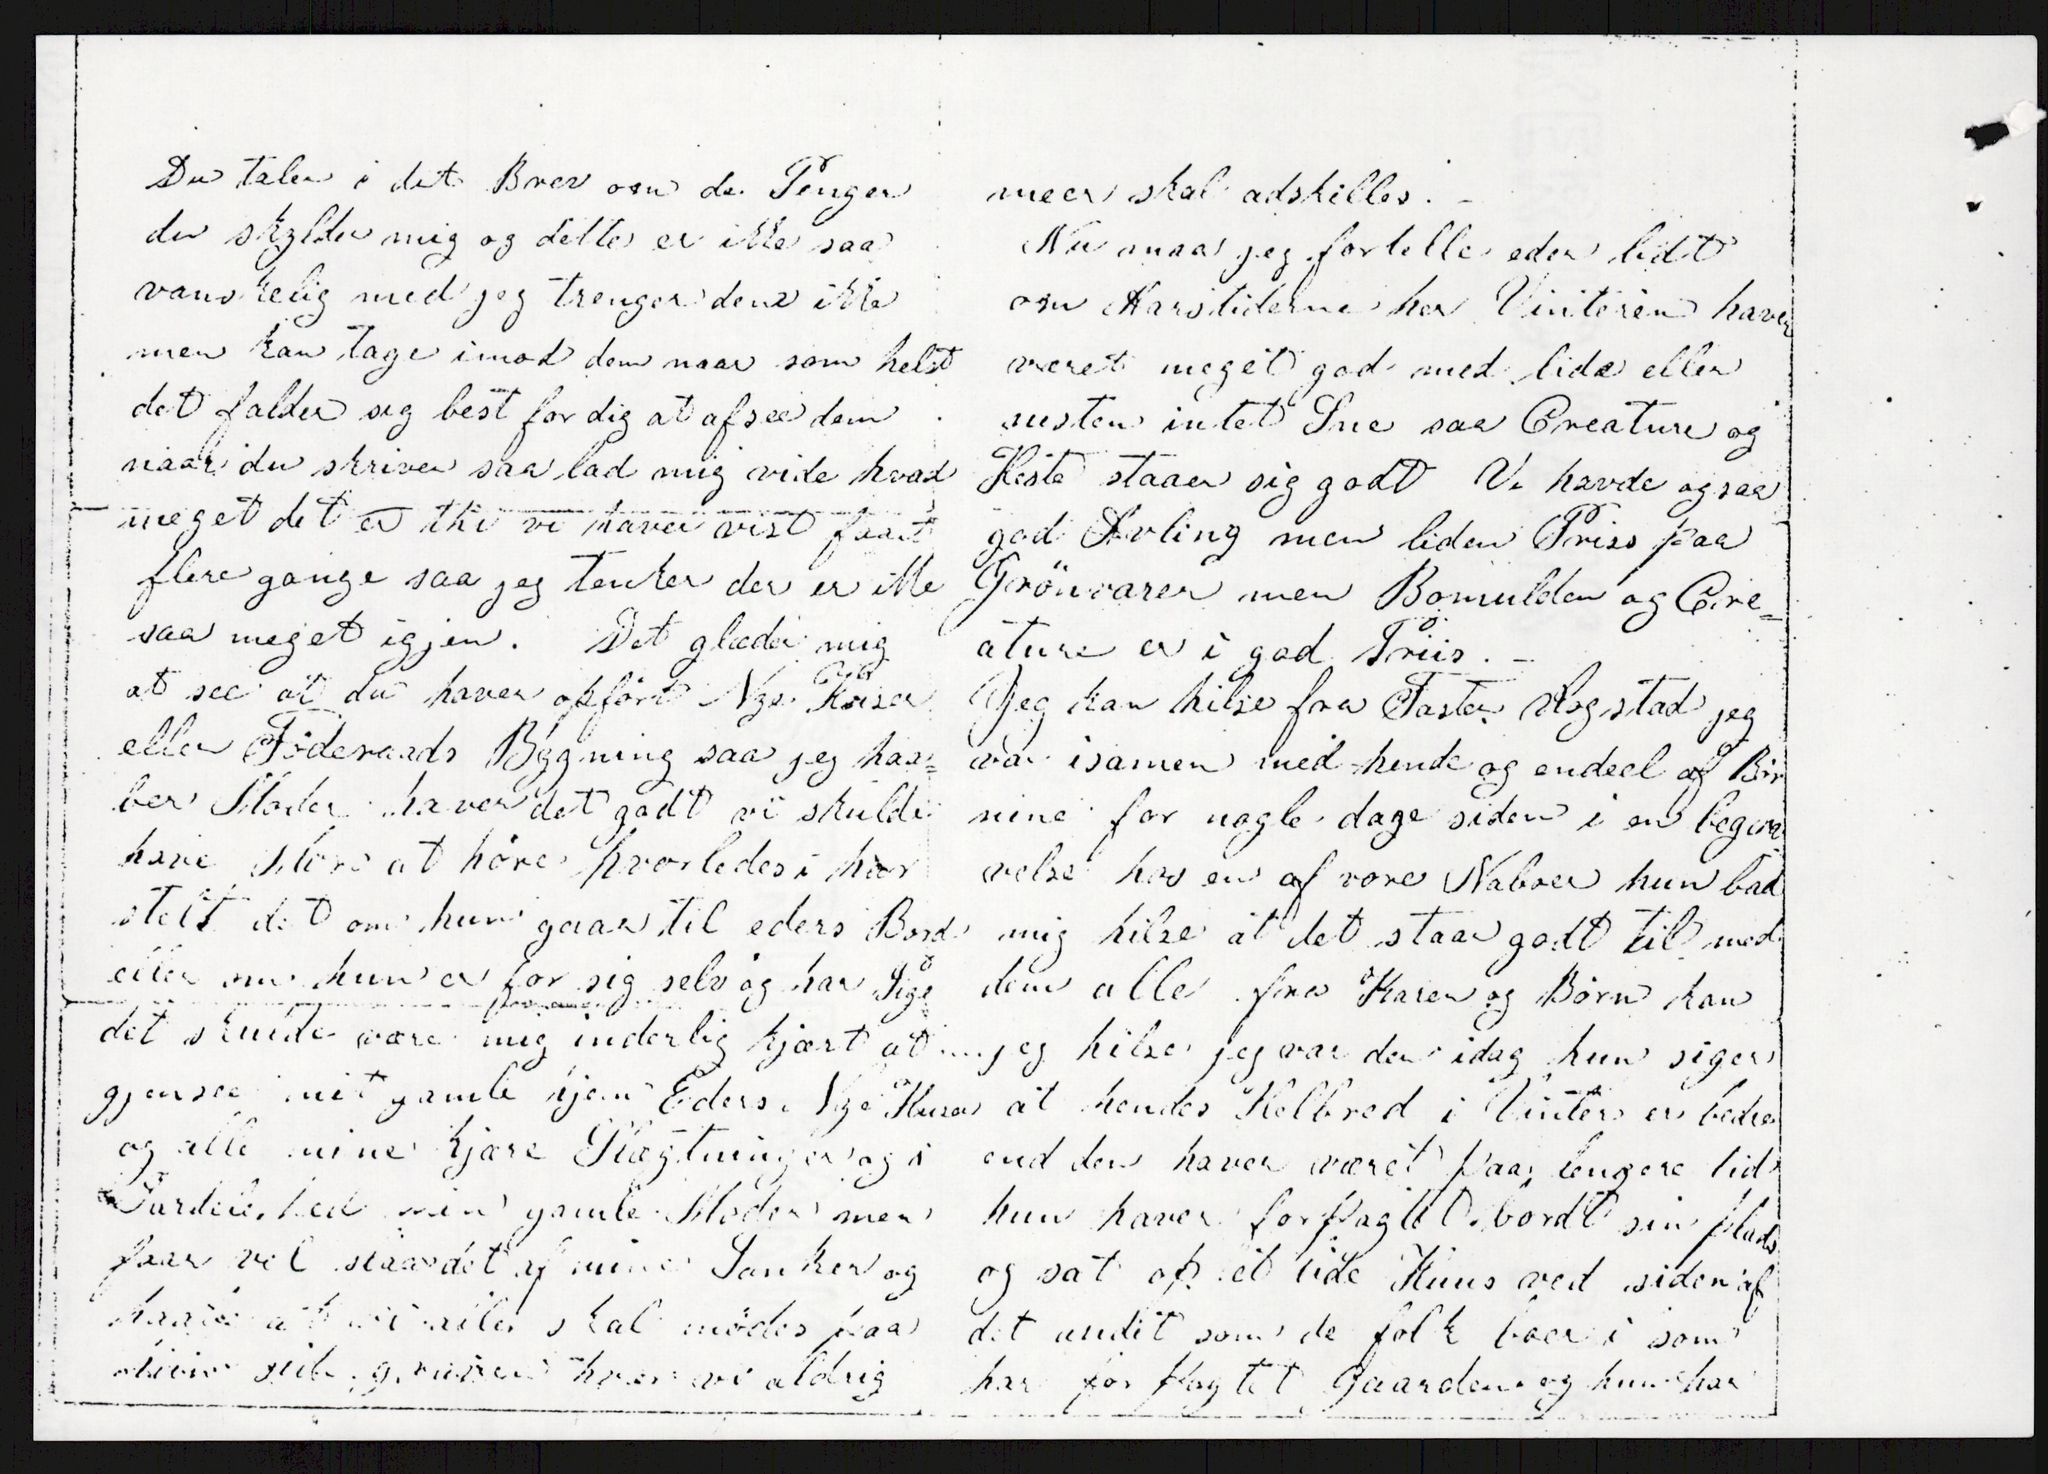 Du taler i dit Brev om de Penger
du skylder mig og dette er ikke saa
vanskelig med jeg trenger dem ikke
men kan tage imod dem naar som helst
det falder sig best for dig at afsee dem
naar du skriver saa lad mig vide hvad
meget det er thi vi haver vist faaet
flere gange saa jeg tenker der er ikke
saa meget igjen. Det glæder mig
at see at du haver opført Nye Huser
eller Föderaads Bygning saa jeg haa=
ber Moder haver det godt vi skulde
have Moro at höre hvorledes i har
stelt det om hun gaar til eders Bord
eller om hun er for sig selv og har Pige
det skulde være mig inderlig kjært at
gjensee mit gamle hjem Eders Nye Huser
og alle mine kjære Slægtninger og i
Særdeleshed min gamle Moder men
faar vel slaa det af mine Tanker og
haabe at vi alle skal mödes paa
hin side graven hvor vi aldrig
meer skal adskilles. -
Nu maa jeg fortelle eder lidt
om Aarstiderne her Vinteren haver
veret meget god med lide eller
nesten intet Sne saa Creature og
Heste staaer sig godt Vi havde ogsaa
god Avling men liden Priss paa
Grönvarer men Bomulden og Cre=
ature er i god Priis. -
Jeg kan hilse fra Faster Rogstad jeg
var isamen med hende og endeel af Bör
nine for nogle dage siden i en begra
velse hos en af vore Naboer hun bad
mig hilse at det staar godt til med
dem alle fra Karen og Börn kan
jeg hilse jeg var der idag hun siger
at hendes Helbred i Vinter er bedre
end den haver været paa lengere tid
hun haver forpagtet bordt sin plads
og sat op et lide Huus ved siden af
det andet som de folk boer i som
har forpagtet Gaarden og hun har